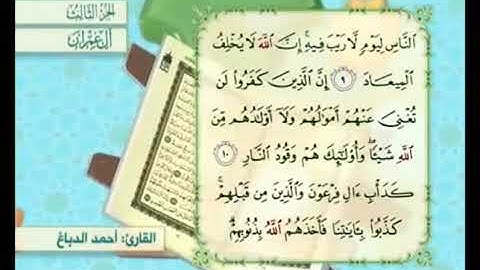 الجزء الثالث
آل عمران
النَّاسِ لِيَوْمٍ لَّا رَيْبَ فِيهِ ۚ إِنَّ اللَّهَ لَا يُخْلِفُ
الْمِيعَادَ ٩ إِنَّ الَّذِينَ كَفَرُوا لَن
تُغْنِيَ عَنْهُمْ أَمْوَالُهُمْ وَلَا أَوْلَادُهُم مِّنَ
اللَّهِ شَيْئًا ۖ وَأُولَٰئِكَ هُمْ وَقُودُ النَّارِ ١٠
كَدَأْبِ آلِ فِرْعَوْنَ وَالَّذِينَ مِن قَبْلِهِمْ ۚ
كَذَّبُوا بِآيَاتِنَا فَأَخَذَهُمُ اللَّهُ بِذُنُوبِهِمْ ۗ
القارئ: أحمد الدباغ